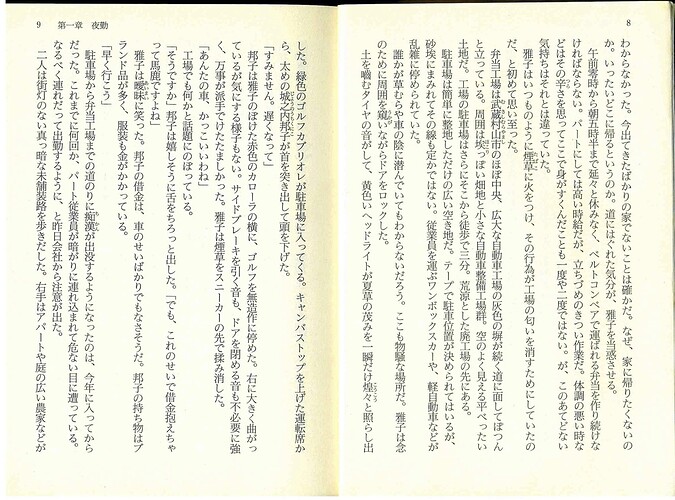 8
わからなかった。今出てきたばかりの家でないことは確かだ。なぜ、家に帰りたくないの
か。いったいどこに帰るというのか。道にはぐれた気分が、雅子を当惑させる。
午前零時から朝五時半まで延々と休みなく、ベルトコンベアで運ばれる弁当を作り続けな
ければならない。パートにしては高い時給だが、立ちづめのきつい作業だ。体調の悪い時な
どはその辛さを思ってここで身がすくんだことも一度や二度ではない。が、このあてどない
気持ちはそれとは違っていた。
雅子はいつものように煙草に火をつけ、その行為が工場の匂いを消すためにしていたの
だ、と初めて思い至った。
弁当工場は武蔵村山市のほぼ中央、広大な自動車工場の灰色の塀が続く道に面してぽつん
と立っている。周囲は埃っぽい畑地と小さな自動車整備工場群。空のよく見える平べったい
土地だ。工場の駐車場はさらにそこから徒歩で三分。荒涼とした廃工場の先にある。
駐車場は簡単に整地しただけの広い空き地だ。テープで駐車位置が決められてはいるが、
砂埃にまみれてその線も定かではない。従業員を運ぶワンボックスカーや、軽自動車などが
乱雑に停められていた。
誰かが草むらや車の陰に潜んでいてもわからないだろう。ここも物騒な場所だ。雅子は念
のために周囲を窺いながらドアをロックした。
土を嚙むタイヤの音がして、黄色いヘッドライトが夏草の茂みを一瞬だけ煌々と照らし出
9 第一章 夜勤
した。緑色のゴルフカブリオレが駐車場に入ってくる。キャンバストップを上げた運転席か
ら、太めの城之内邦子が首を突き出して頭を下げた。
「すみません。遅くなって」
邦子は雅子のぼけた赤色のカローラの横に、ゴルフを無造作に停めた。右に大きく曲がっ
ているが気にする様子もない。サイドブレーキを引く音も、ドアを閉める音も不必要に強
く、万事が派手でけたたましかった。雅子は煙草をスニーカーの先で揉み消した。
「あんたの車、かっこいいわね」
工場でも何かと話題にのぼっている。
「そうですか」邦子は嬉しそうに舌をちろっと出した。「でも、これのせいで借金抱えちゃ
って馬鹿ですよね」
雅子は曖昧に笑った。邦子の借金は、車のせいばかりでもなさそうだ。邦子の持ち物はブ
ランド品が多く、服装も金がかかっている。
「早く行こう」
駐車場から弁当工場までの道のりに痴漢が出没するようになったのは、今年に入ってから
だった。これまでに何回か、パート従業員が暗がりに連れ込まれて危ない目に遭っている。
なるべく連れだって出勤するように、と昨日会社から注意が出た。
二人は街灯のない真っ暗な未舗装路を歩きだした。右手はアパートや庭の広い農家などが